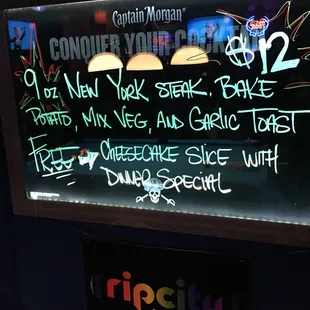 Captain Morgan
CONQUER YOUR
$12
9 oz NEW YORK STEAK, BAKE
POTATO, MIX VEG, AND GARLIC TOAST
FREE CHEESECAKE SLICE WITH
DINNER SPECIAL
ripcity